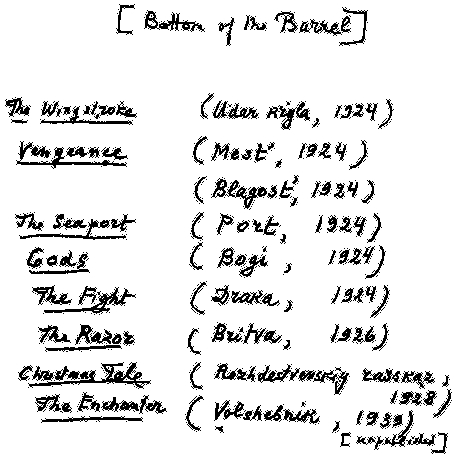 [Bottom of the Barrel]
The Wingstroke (Udar krïla, 1924)
Vengeance (Mest', 1924)
(Blagost', 1924)
The Seaport (Port, 1924)
Gods (Bogi, 1924)
The Fight (Draka, 1924)
The Razor (Britva, 1926)
Christmas Tale (Rozhdestvenskiy rasskaz, 1928)
The Enchanter (Volshebnik, 1939)
[unpublished]